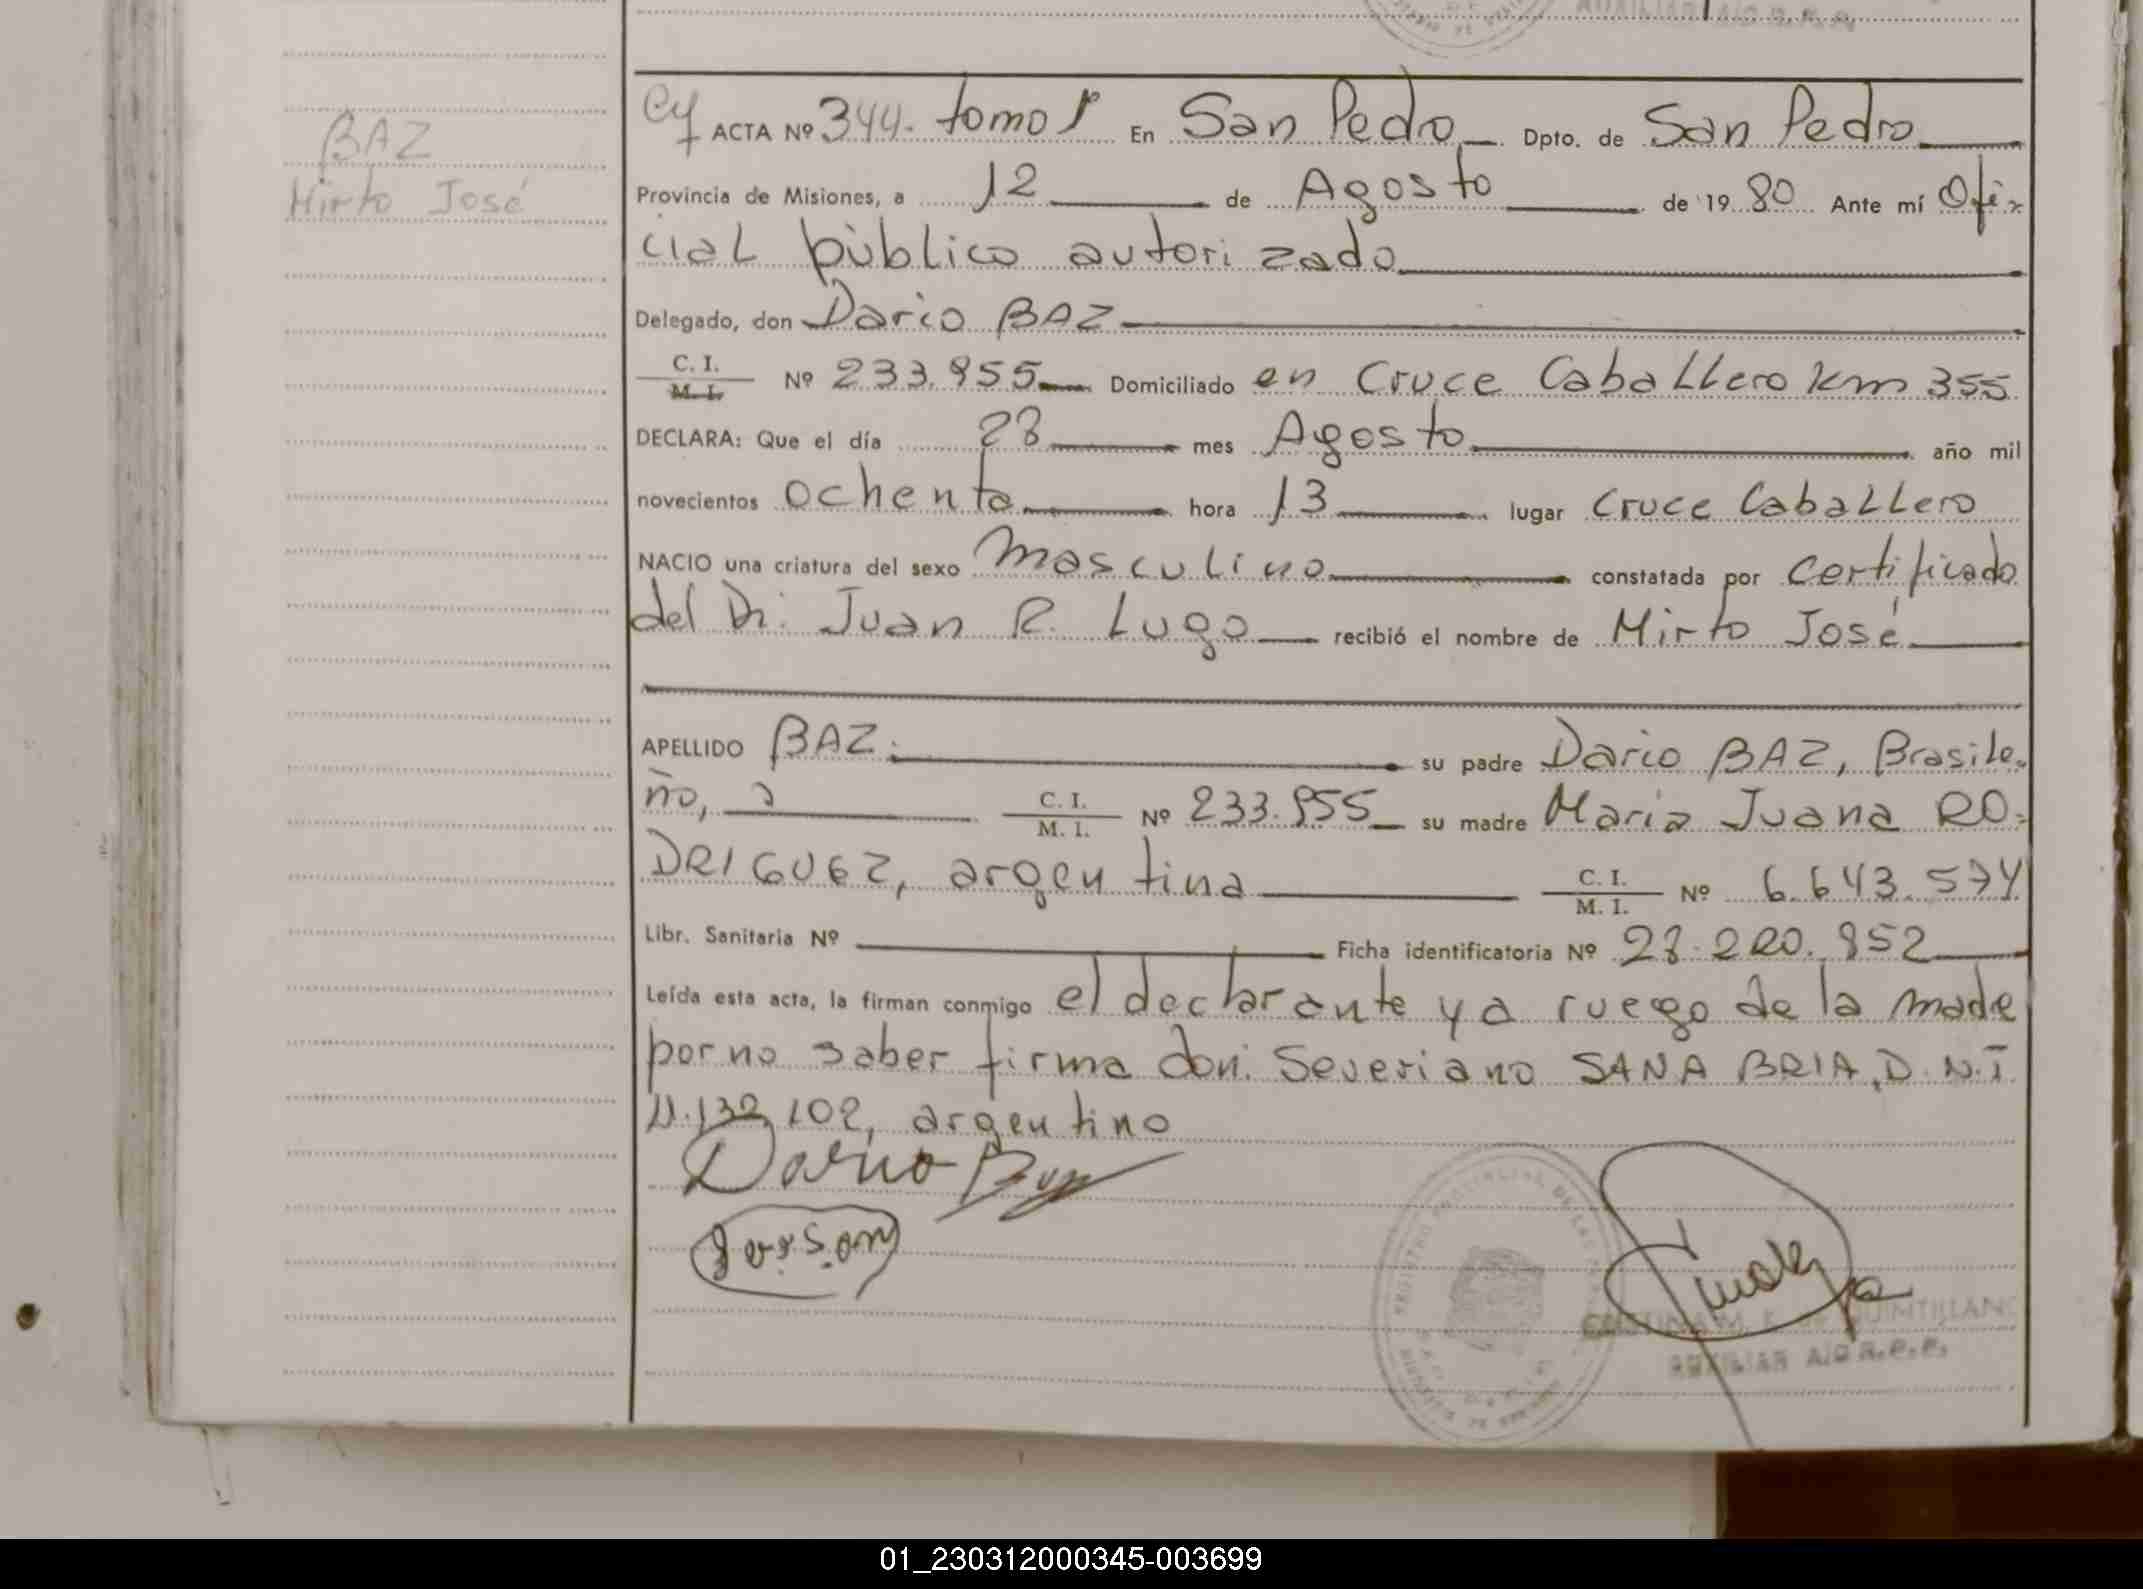 BAZ
Mirto José
ACTA Nº 344. tomo 1º En San Pedro Dpto. de San Pedro
Provincia de Misiones, a 12 de Agosto de 1980 Ante mí Ofi-
cial público autorizado
Delegado, don Dario BAZ
C. I.
M. I. Nº 233.955 Domiciliado en Cruce Caballero km 355
DECLARA: Que el día mes Agosto año mil
novecientos ochenta hora 13 lugar Cruce Caballero
NACIO una criatura del sexo Masculino constatada por certificado
del Dr. Juan R. Lugo recibió el nombre de Mirto José
APELLIDO BAZ. su padre Dario BAZ, Brasile-
ño, C. I.
M. I. Nº 233.955 su madre Maria Juana RO-
DRIGUEZ, argentina C. I.
M. I. Nº 6.643.574
Libr. Sanitaria Nº Ficha identificatoria Nº 28.220.852
Leída esta acta, la firman conmigo el declarante y a ruego de la madre
por no saber firma don: Severiano SANABRIA, D.N.I.
102, argentino
Dario
QUINTILLANO
AUXILIAR A/C R.P.P.
01_230312000345-003699